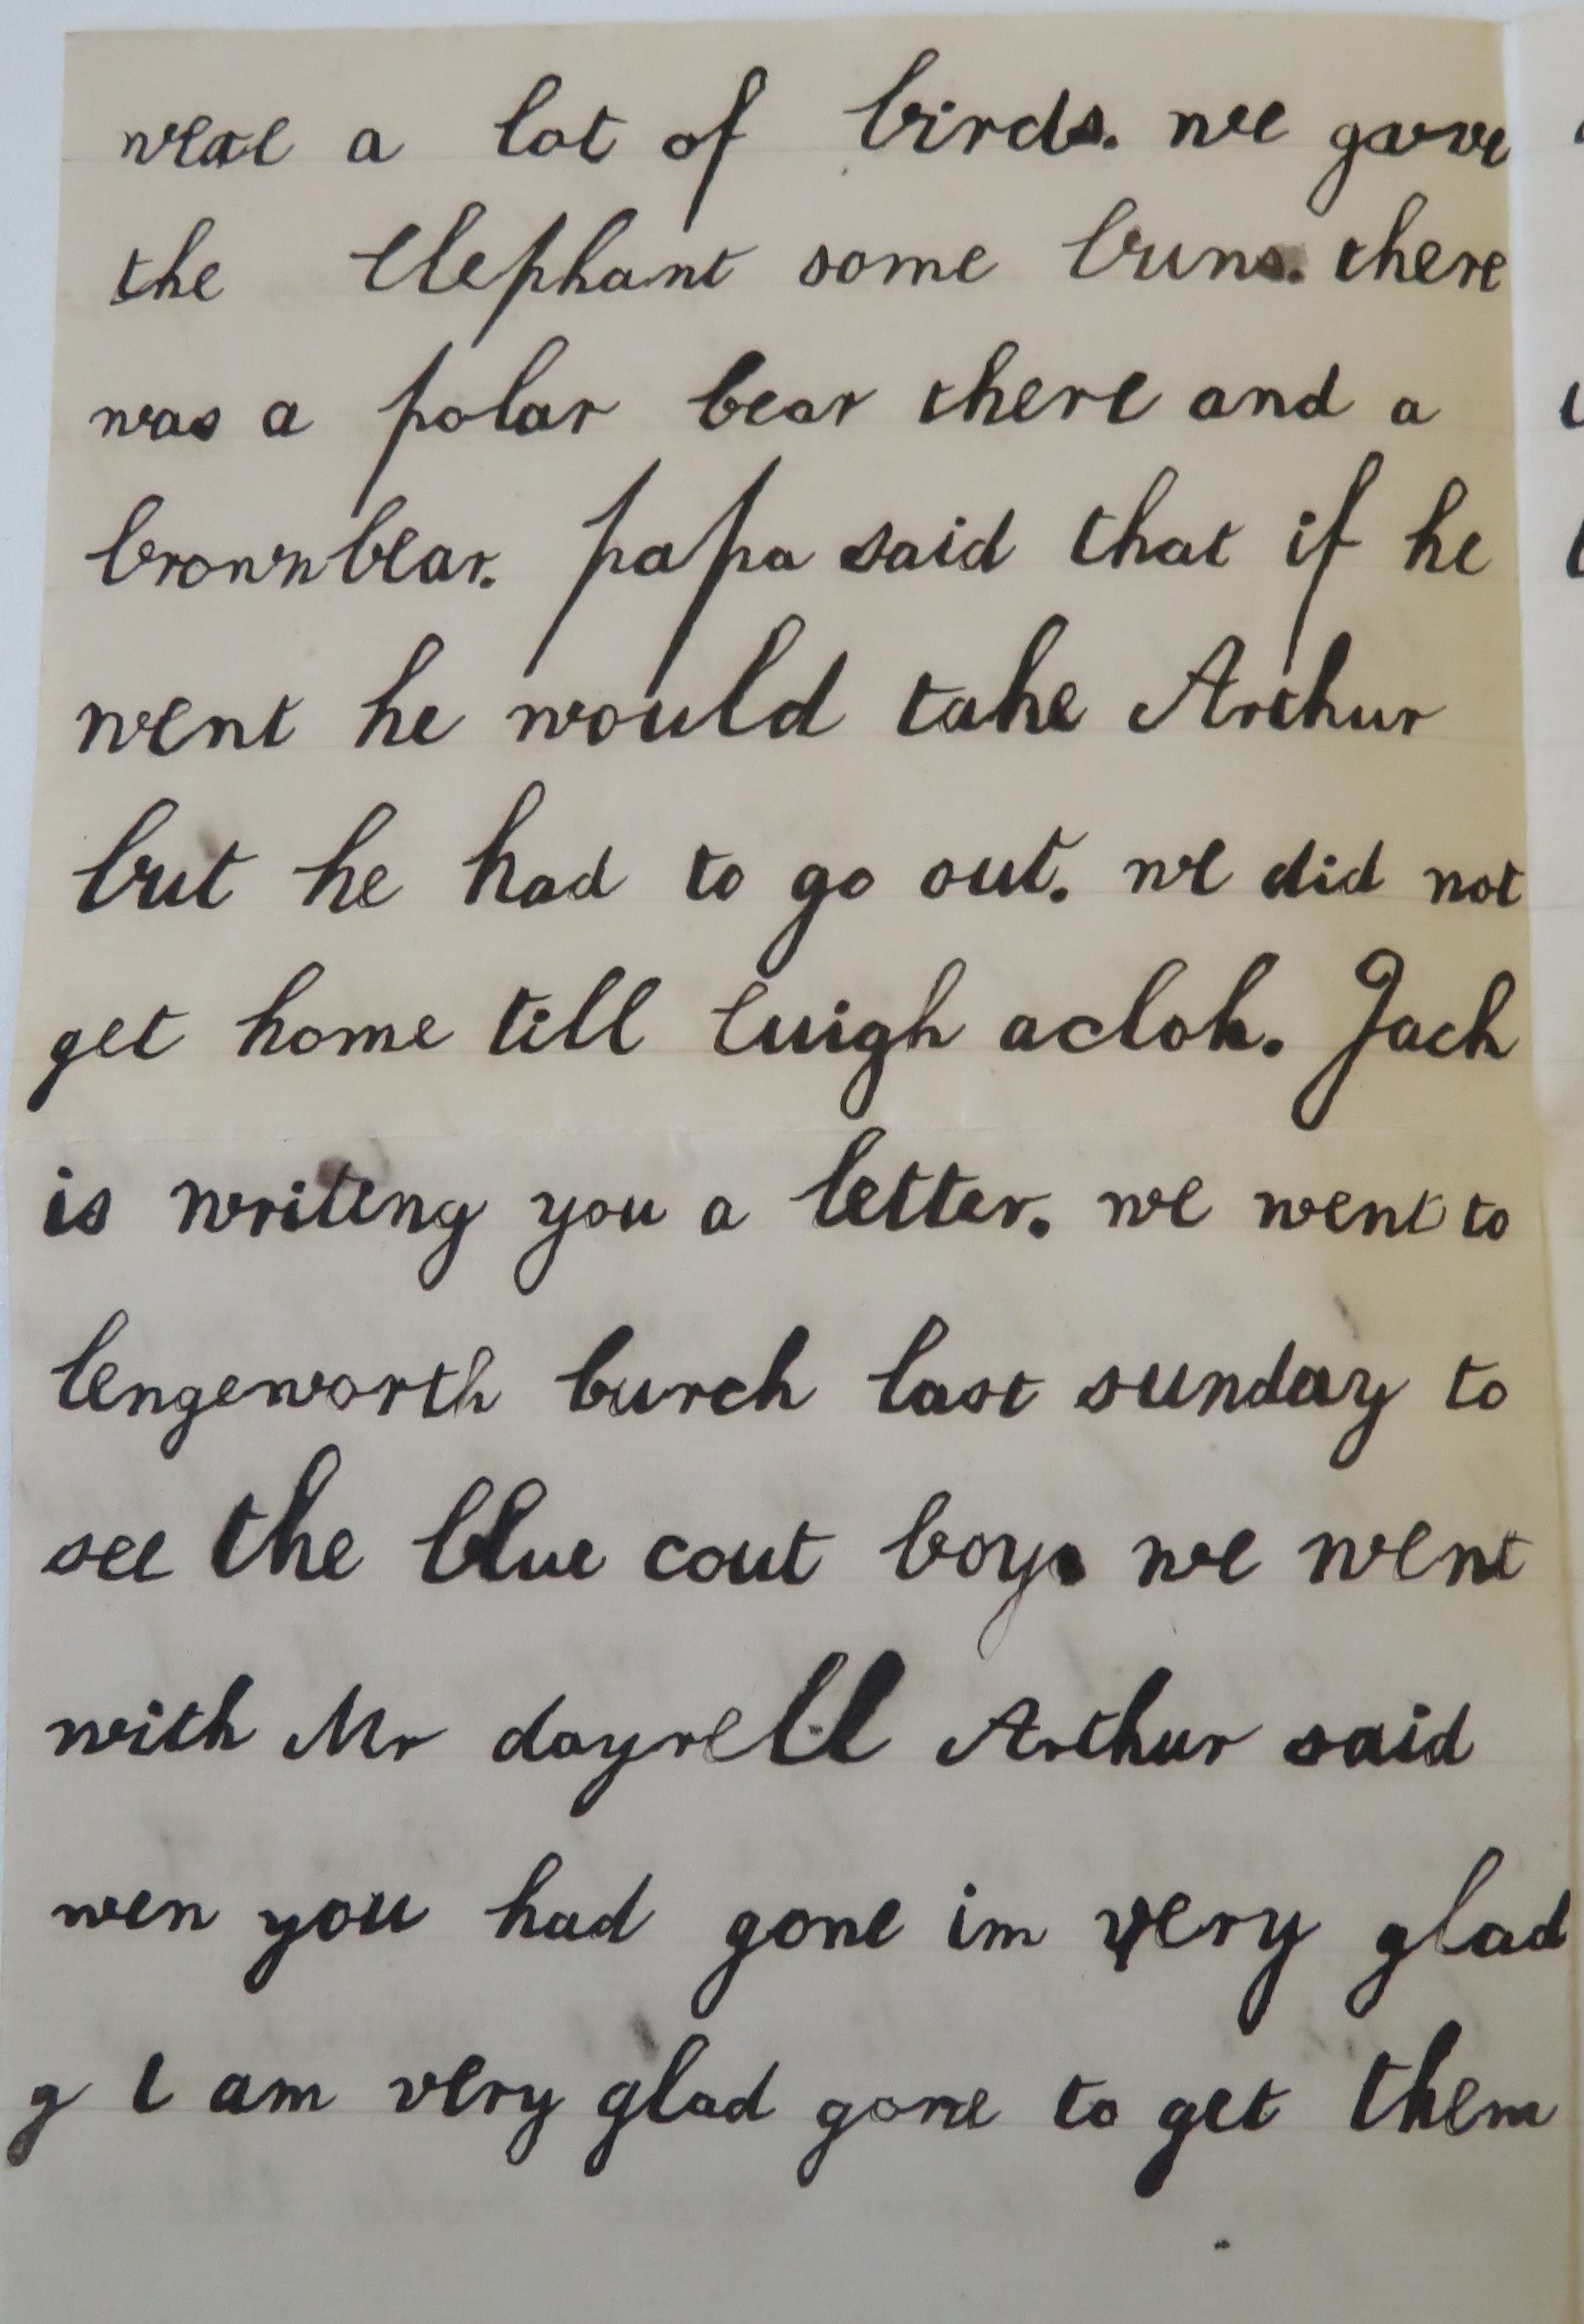 weae a lot of birds. we gave
the Elephant some buns. there
was a polar bear there and a
brown bear. papa said that if he
went he would take Arthur
but he had to go out. we did not
get home till euigh aclok. Jack
is writeng you a letter. we went to
lengeworth burch last sunday to
see the blue cout boys we went
with Mr dayrell Arthur said
wen you had gone im very glad
g I am very glad gone to get them